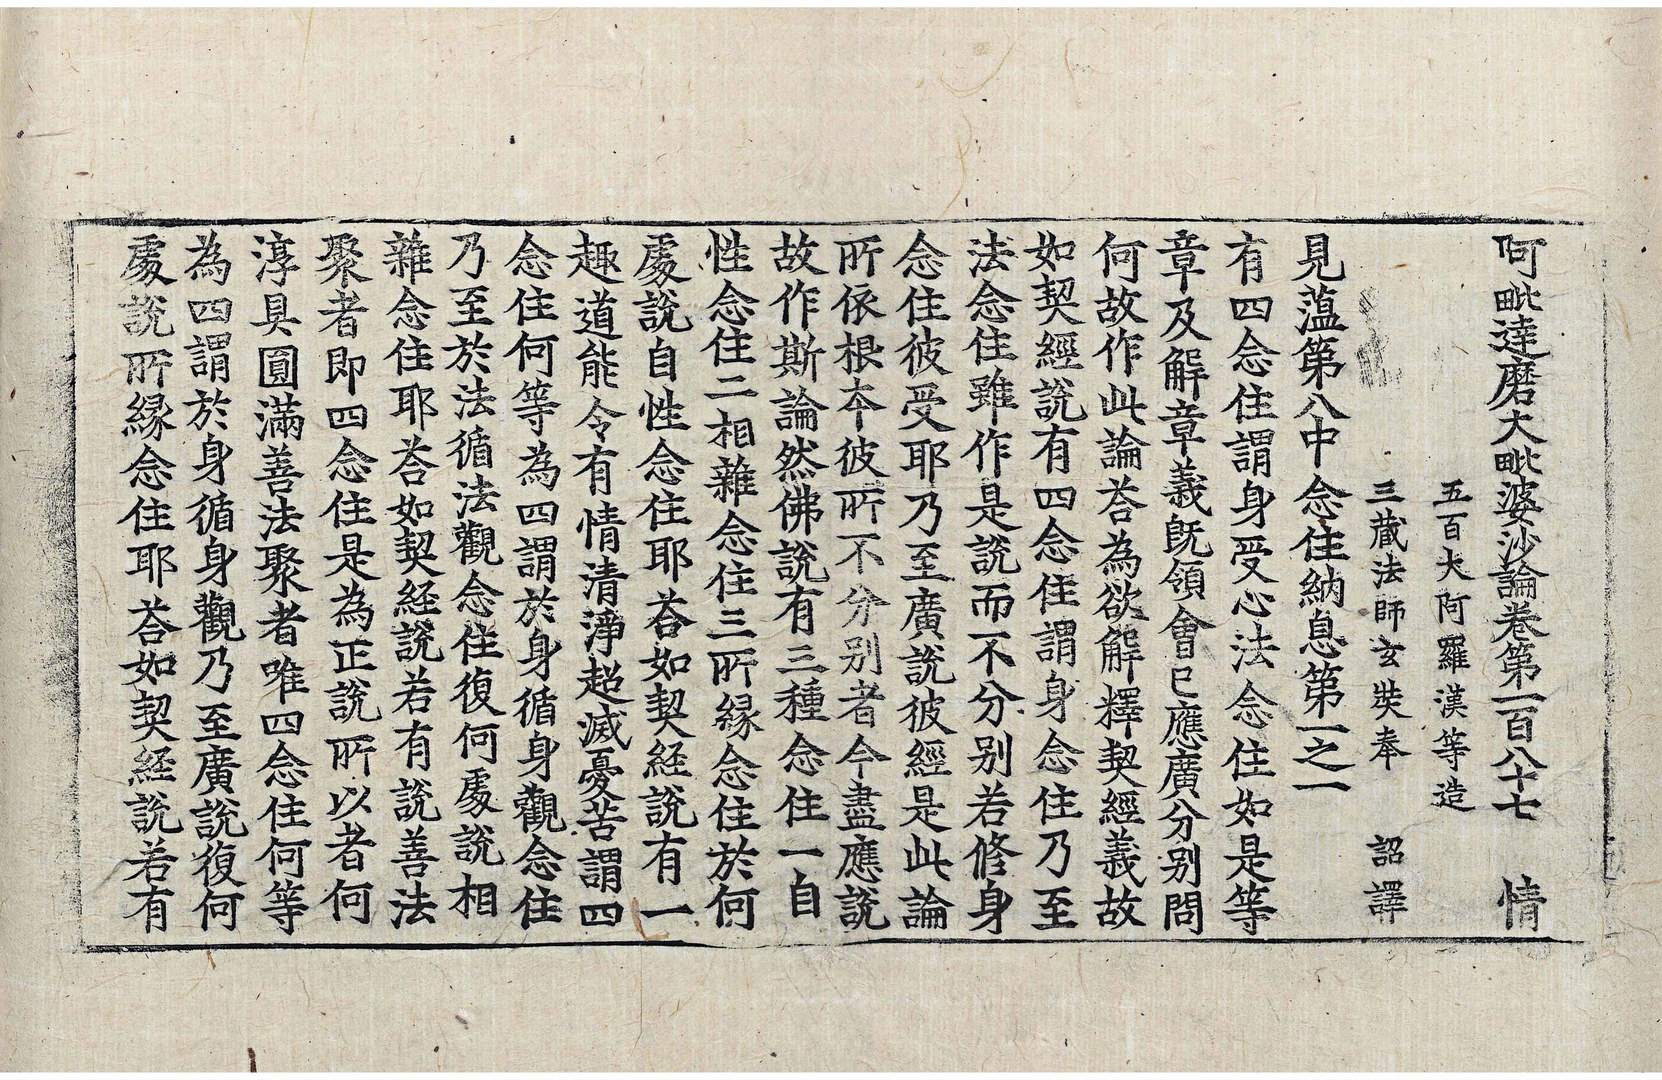 阿毗達磨大毗婆沙論卷第一百八十七 情
五百大阿羅漢等造
三藏法師玄奘奉 詔譯
見薀第八中念住納息第一之一
有四念住謂身受心法念住如是等
章及解章義旣領會已應廣分别問
何故作此論荅為欲解釋契經義故
如契經說有四念住謂身念住乃至
法念住雖作是說而不分别若修身
念住彼受耶乃至廣說彼經是此論
所依根本彼所不分别者今盡應說
故作斯論然佛說有三種念住一自
性念住二相雜念住三所緣念住於何
處說自性念住耶荅如契経說有一
趣道能令有情清淨超滅憂苦謂四
念住何等為四謂於身循身觀念住
乃至於法循法觀念住復何處說相
雜念住耶荅如契経說若有說善法
聚者即四念住是為正說所以者何
淳具圓滿善法聚者唯四念住何等
為四謂於身循身觀乃至廣說復何
處說所緣念住耶荅如契経說若有